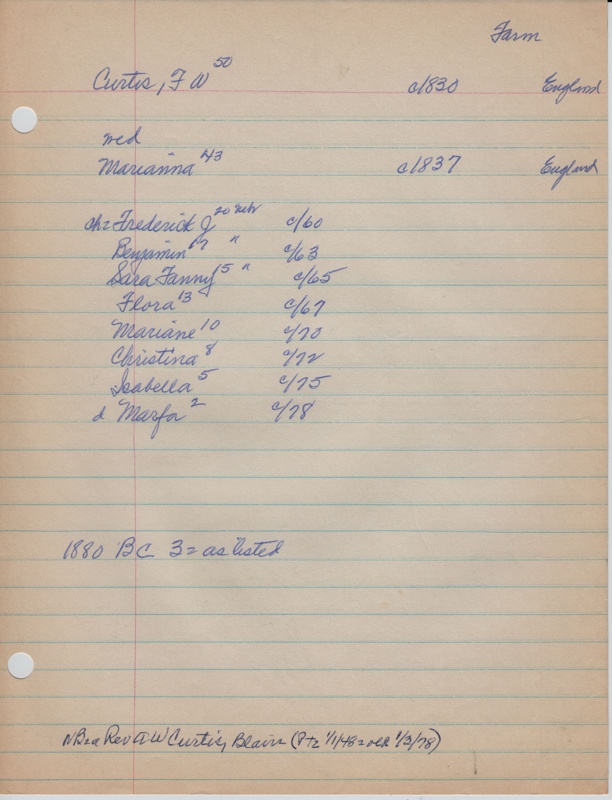 Farm
Curtis, F W 50 c/1830 England
wed
Marianna 43 c/1837 England
ch= Frederick J 20 Neb c/60
Benjamin 17 " c/63
Sara Fanny 15 " c/65
Flora 13 c/67
Mariane 10 c/70
Christina 8 c/72
Isabella 5 c/75
d Marfa 2 c/78
1880 BC 3= as listed
NB= a Rev A W Curtis, Blair (P+2 1/1/48= 1/3/78)